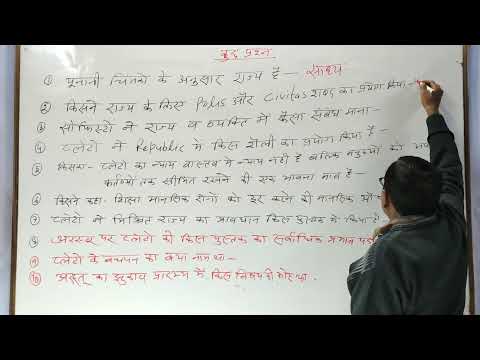 कुछ प्रश्न
① यूनानी चिंतकों के अनुसार राज्य है — साध्य
② किसने राज्य के लिए Polis और Civitas शब्द का प्रयोग किया -
③ सोफिस्टों ने राज्य व व्यक्ति में कैसा संबंध माना -
④ प्लेटो ने Republic में किस शैली का प्रयोग किया है -
⑤ प्लेटो का न्याय वास्तव में न्याय नहीं है बल्कि मनुष्यों को
कर्तव्यों तक सीमित रखने की एक भावना मात्र है -
⑥ किसने कहा शिक्षा मानसिक रोगों को दूर करने की मानसिक
⑦ प्लेटो ने मिश्रित राज्य का प्रावधान किस पुस्तक में किया है -
⑧ अरस्तू पर प्लेटो की किस पुस्तक का सर्वाधिक प्रभाव
⑨ प्लेटो के बचपन का क्या नाम था -
⑩ अरस्तू का झुकाव प्रारम्भ में किस विषय की ओर था -